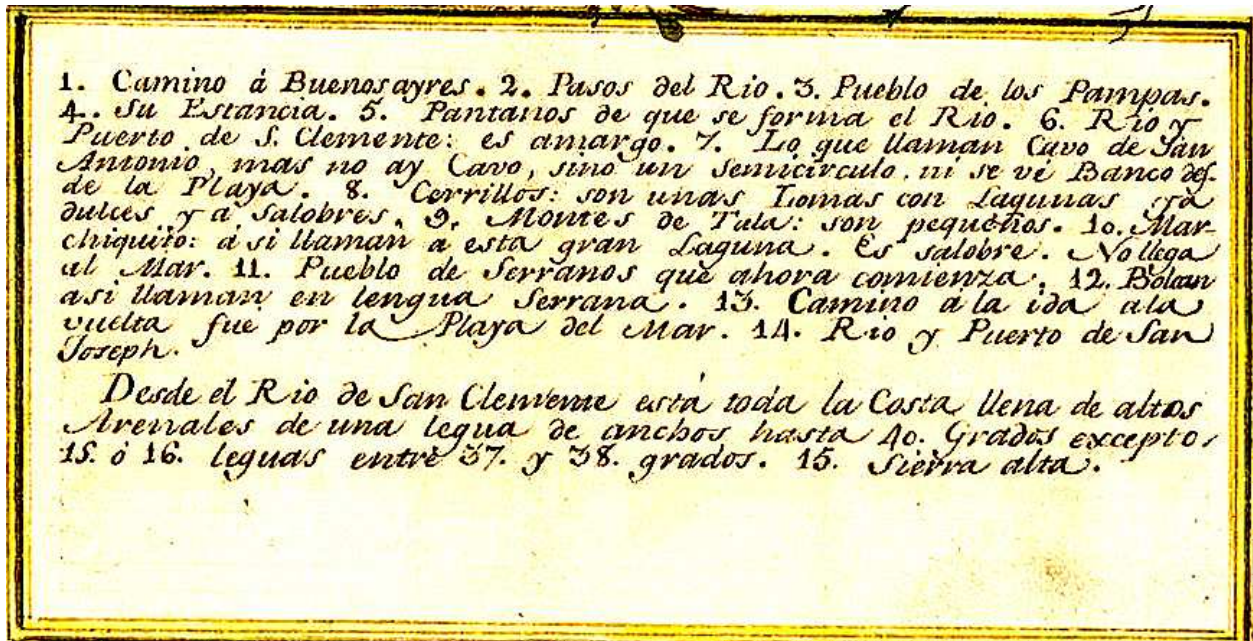 1. Camino á Buenosayres. 2. Pasos del Rio. 3. Pueblo de los Pampas.
4. Su Estancia. 5. Pantanos de que se forma el Rio. 6. Rio y
Puerto de S. Clemente: es amargo. 7. Lo que llaman Cavo de San
Antonio, mas no ay Cavo, sino un semicirculo, ni se vé Banco des-
de la Playa. 8. Cerrillos: son unas Lomas con Lagunas ya
dulces, ya salobres. 9. Montes de Tala: son pequeños. 10. Mar-
chiquito: asi llaman a esta gran Laguna. Es salobre. No llega
al Mar. 11. Pueblo de Serranos que ahora comienza. 12. Bolcan
asi llaman en lengua Serrana. 13. Camino a la ida ala
vuelta fue por la Playa del Mar. 14. Rio y Puerto de San
Joseph.
Desde el Rio de San Clemente está toda la Costa llena de altos
Arenales de una legua de anchos hasta 40. Grados excepto,
15. ó 16. leguas entre 37. y 38. grados. 15. Sierra alta.